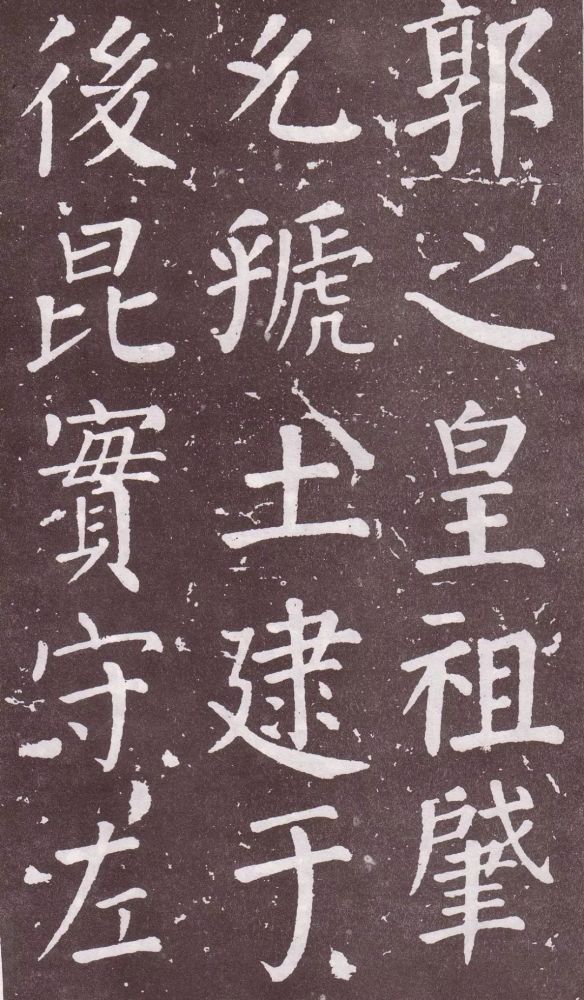 郭之皇祖肇
允虢土逮于
後昆實守左